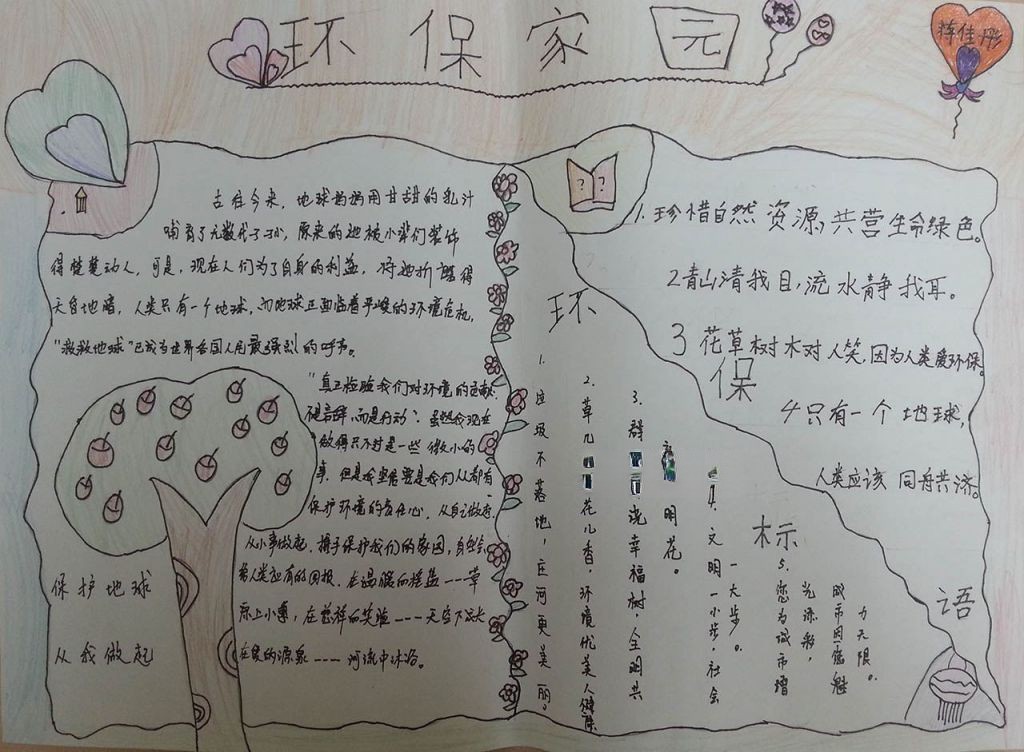 环保家园
佳彤
古往今来，地球妈妈用甘甜的乳汁
哺育了无数代子孙，原来的她被小辈们装饰
得楚楚动人，可是，现在人们为了自身的利益，将她折磨得
天昏地暗，人类只有一个地球，而地球正面临着严峻的环境危机，
"救救地球"已成为世界各国人民最强烈的呼声。
"真正检验我们对环境的贡献
不是言辞，而是行动"。虽然我现在
做得只不过是一些微小的
事，但是我坚信要是我们从都有
保护环境的责任心，从自己做起，
从小事做起，携手保护我们的家园，自然会
给人类应有的回报。在温暖的摇篮----草
原上小憩，在慈祥的笑脸----天空下
的源泉----河流中沐浴。
保护地球
从我做起
环保标语
1.珍惜自然资源，共营生命绿色。
2青山清我目，流水静我耳。
3花草树木对人笑，因为人类爱环保。
4只有一个地球，
人类应该同舟共济。
1.垃圾不落地，庄河更美丽。
2.草儿 花儿香，环境优美人健康
3.群 浇幸福树，全明共
明花。
4.文明一小步，社会
一大步。
5.您为城市增
光添彩，
城市因您魅
力无限。